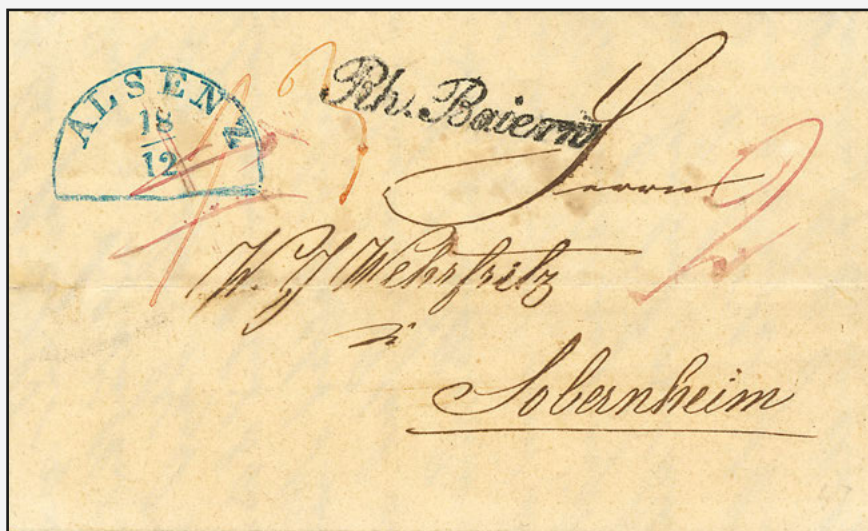 ALSENZ
18
12
Rh. Baiern
3
2
Herrn
W. J. Wehrfritz
Sobernheim